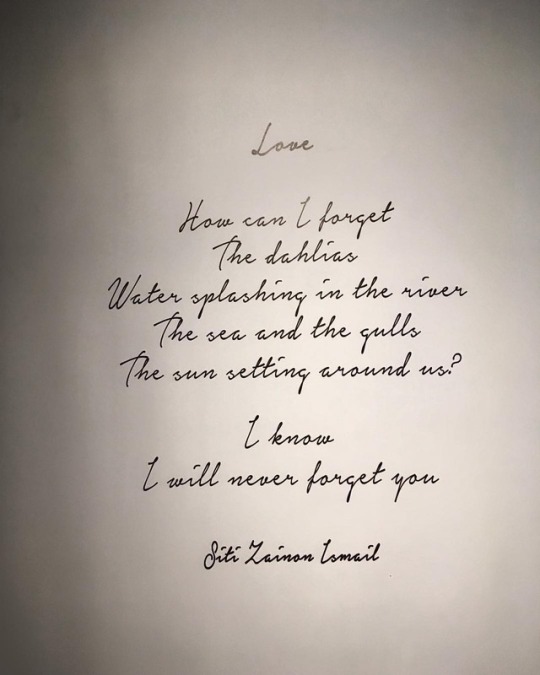 Love
How can I forget
The dahlias
Water splashing in the river
The sea and the gulls
The sun setting around us?
I know
I will never forget you
Siti Zainon Ismail